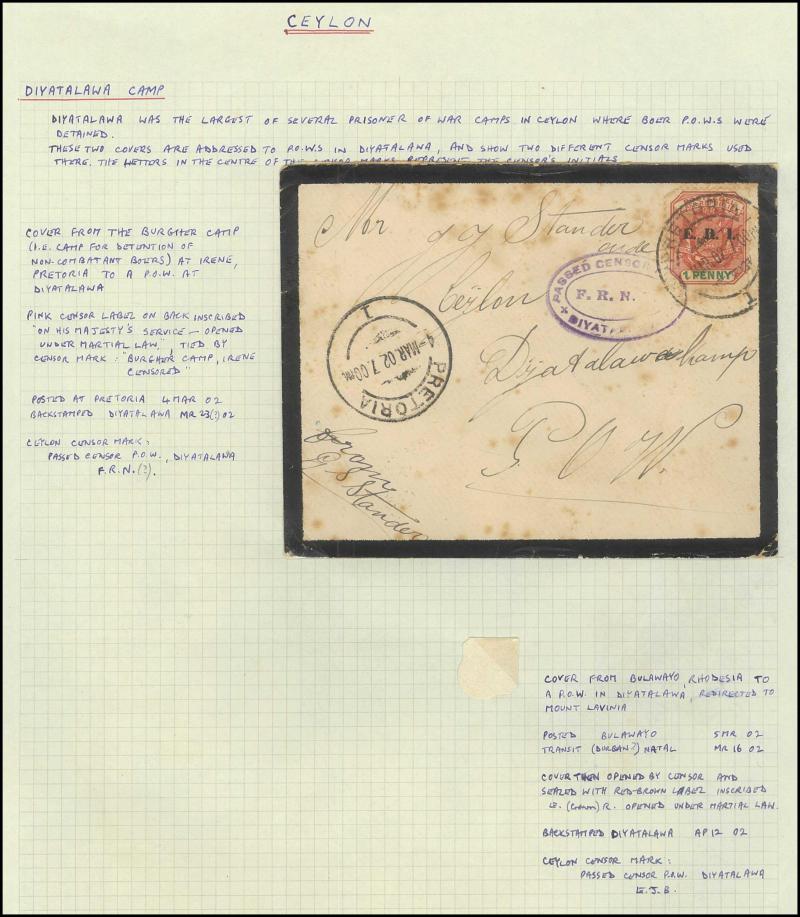 CEYLON
DIYATALAWA CAMP
DIYATALAWA WAS THE LARGEST OF SEVERAL PRISONER OF WAR CAMPS IN CEYLON WHERE BOER P.O.W.S WERE
DETAINED.
THESE TWO COVERS ARE ADDRESSED TO P.O.W.S IN DIYATALAWA, AND SHOW TWO DIFFERENT CENSOR MARKS USED
THERE. THE LETTERS IN THE CENTRE OF THE CENSOR MARKS REPRESENT THE CENSOR'S INITIALS
COVER FROM THE BURGHER CAMP
(I.E. CAMP FOR DETENTION OF
NON-COMBATANT BOERS) AT IRENE,
PRETORIA TO A P.O.W. AT
DIYATALAWA
PINK CENSOR LABEL ON BACK INSCRIBED
"ON HIS MAJESTY'S SERVICE - OPENED
UNDER MARTIAL LAW", TIED BY
CENSOR MARK: "BURGHER CAMP, IRENE
CENSORED"
POSTED AT PRETORIA 4 MAR 02
BACKSTAMPED DIYATALAWA MR 23(?) 02
CEYLON CENSOR MARK:
PASSED CENSOR P.O.W., DIYATALAWA
F.R.N.(?).
Mr Stander
Ceylon
Diyatalawa Camp
P O W
Stander
E.R.I.
1 PENNY
PASSED CENSOR
F.R.N.
1
4 MAR 02 7.00
PRETORIA
COVER FROM BULAWAYO, RHODESIA TO
A P.O.W. IN DIYATALAWA, REDIRECTED TO
MOUNT LAVINIA
POSTED BULAWAYO 5 MR 02
TRANSIT (DURBAN?) NATAL MR 16 02
COVER THEN OPENED BY CENSOR AND
SEALED WITH RED-BROWN LABEL INSCRIBED
E. (Crown) R. OPENED UNDER MARTIAL LAW.
BACKSTAMPED DIYATALAWA AP 12 02
CEYLON CENSOR MARK:
PASSED CENSOR P.O.W. DIYATALAWA
E.J.B.